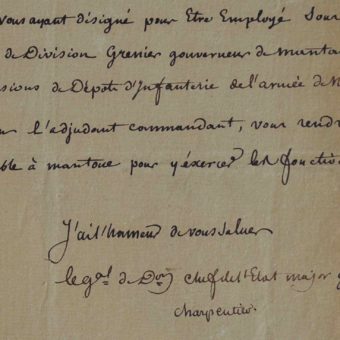 vous ayant désigné pour Etre Employé Sous
de Division Grenier gouverneur de manto
sions de Dépots d'Infanterie de l'armée de N
l'adjudant commandant, vous rendr
ble à mantoue pour y éxercer les fonctio
J'ai l'honneur de vous Saluer
le gal de Don chef de l'Etat major g
charpentier